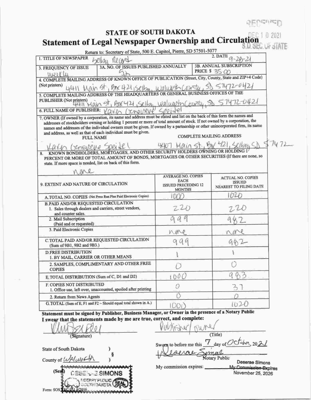 RECEIVED
DEC 10 2021
S.D. SEC. OF STATE
STATE OF SOUTH DAKOTA
Statement of Legal Newspaper Ownership and Circulation
Return to: Secretary of State, 500 E. Capitol, Pierre, SD 57501-5077
1. TITLE OF NEWSPAPER Selby Record
2. DATE 9-28-21
3. FREQUENCY OF ISSUE weekly
3A. NO. OF ISSUES PUBLISHED ANNUALLY 52
3B. ANNUAL SUBSCRIPTION PRICE $ 35.00
4. COMPLETE MAILING ADDRESS OF KNOWN OFFICE OF PUBLICATION (Street, City, County, State and ZIP+4 Code) (Not printer)
4411 Main St, Box 421 Selby, Walworth County, SD 57472-0421
5. COMPLETE MAILING ADDRESS OF THE HEADQUARTERS OF GENERAL BUSINESS OFFICES OF THE PUBLISHER (Not printer)
4411 Main St, Box 421 Selby, Walworth County, SD 57472-0421
6. FULL NAME OF PUBLISHER:
7. OWNER (If owned by a corporation, its name and address must be stated and list on the back of this form the names and addresses of stockholders owning or holding 1 percent or more of total amount of stock. If not owned by a corporation, the names and addresses of the individual owners must be given. If owned by a partnership or other unincorporated firm, its name and address, as well as that of each individual must be given.
FULL NAME
COMPLETE MAILING ADDRESS
Main St, Box 421, Selby, SD 57472
8. KNOWN BONDHOLDERS, MORTGAGES, AND OTHER SECURITY HOLDERS OWNING OR HOLDING 1 PERCENT OR MORE OF TOTAL AMOUNT OF BONDS, MORTGAGES OR OTHER SECURITIES (If there are none, so state. If more space is needed, list on back of this form.
none
9. EXTENT AND NATURE OF CIRCULATION
AVERAGE NO. COPIES EACH ISSUED PRECEDING 12 MONTHS
ACTUAL NO. COPIES ISSUED NEAREST TO FILING DATE
A. TOTAL NO. COPIES 1000 1020
B. PAID AND/OR REQUESTED CIRCULATION
1. Sales through dealers and carriers, street vendors, and counter sales. 220 220
2. Mail Subscription (Paid and or requested) 999 982
3. Paid Electronic Copies none none
C. TOTAL PAID AND/OR REQUESTED CIRCULATION (Sum of 9B1, 9B2 and 9B3.) 999 982
D. FREE DISTRIBUTION
1. BY MAIL, CARRIER OR OTHER MEANS 1 1
2. SAMPLES, COMPLIMENTARY AND OTHER FREE COPIES 0 0
E. TOTAL DISTRIBUTION (Sum of C, D1 and D2) 1000 983
F. COPIES NOT DISTRIBUTED
1. Office use, left over, unaccounted, spoiled after printing 0 37
2. Return from News Agents 0 0
G. TOTAL (Sum of E, F1 and F2 - Should equal total shown in A.) 1000 1020
Statement must be signed by Publisher, Business Manager, or Owner in the presence of a Notary Public
I swear that the statements made by me are true, correct, and complete:
Publisher/owner
(Signature)
(Title)
State of South Dakota )
County of Walworth )
Sworn to before me this 7 day of October, 2021
Deserae Simons
Notary Public
(Seal)
My commission expires
Deserae Simons
My Commission Expires
November 25, 2026
SIMONS
NOTARY PUBLIC
SOUTH DAKOTA